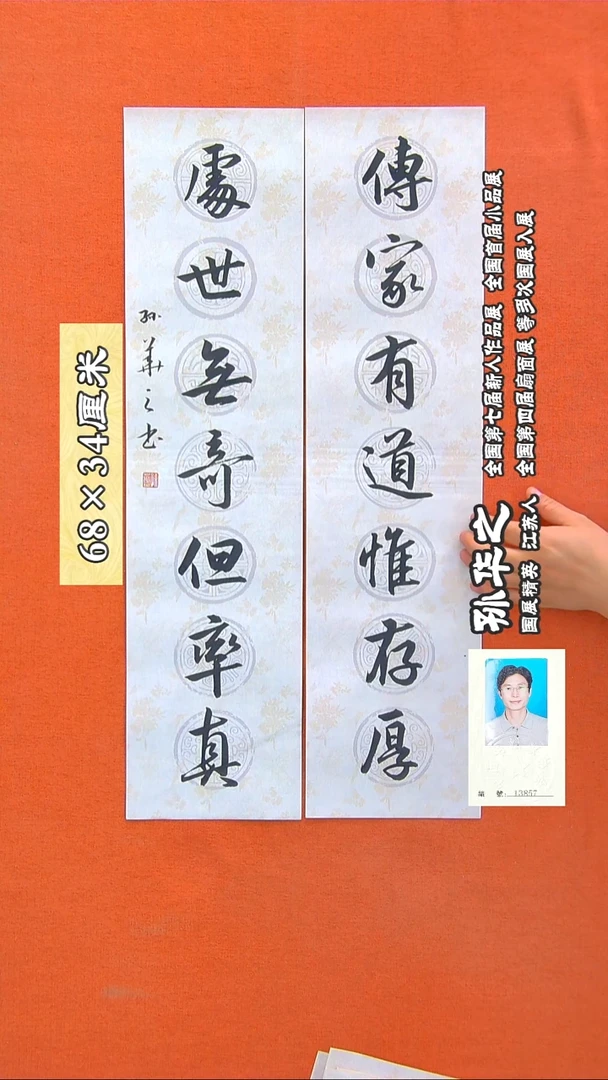 傳家有道惟存厚
處世無奇但率真
孙華之书
68×34厘米
孙华之
国展精英 江苏人
全国第七届新人作品展 全国首届小品展
全国第四届扇面展 等多次国展入展
編 號: 13857